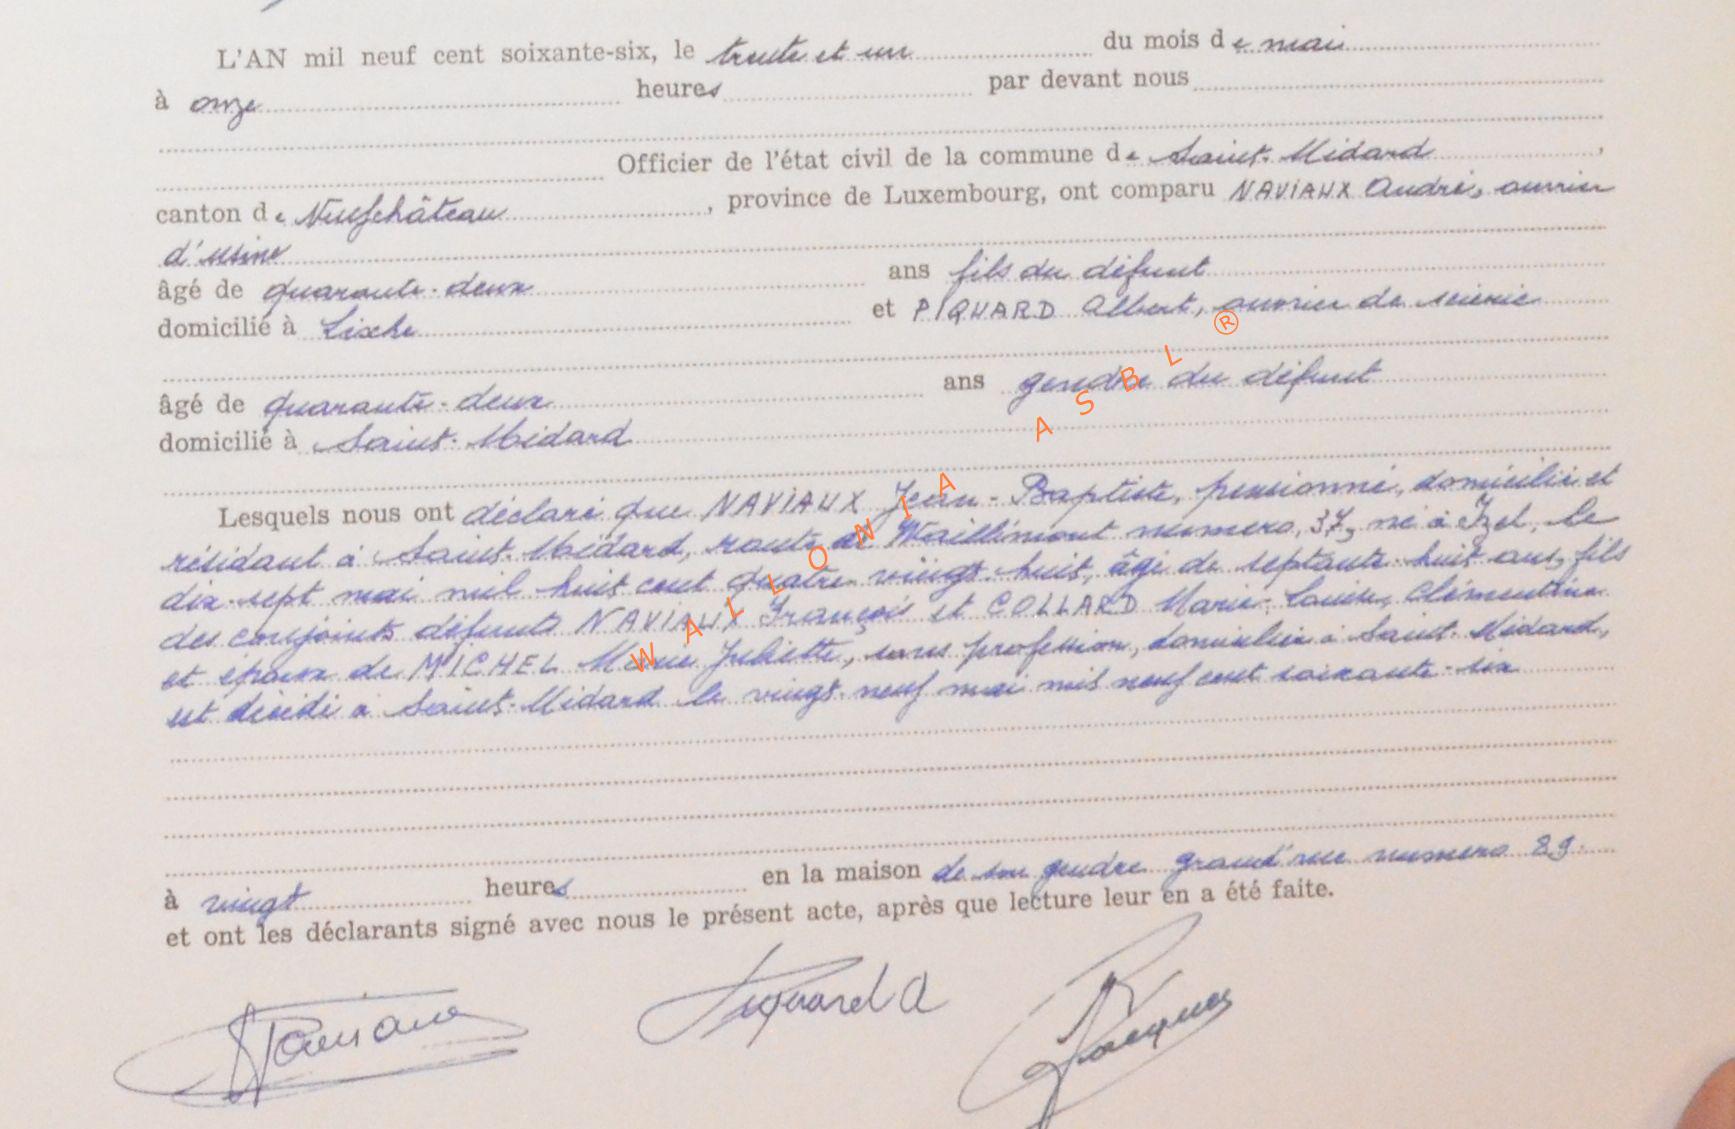 L'AN mil neuf cent soixante-six, le trente et un du mois de mai
à onze heures par devant nous
Officier de l'état civil de la commune de Saint-Médard,
canton de Neufchâteau, province de Luxembourg, ont comparu NAVIAUX André, ouvrier
d'usine
âgé de quarante-deux ans fils du défunt
domicilié à et PIQUARD Albert, ouvrier de scierie
âgé de quarante-deux ans gendre du défunt
domicilié à Saint-Médard
Lesquels nous ont déclaré que NAVIAUX Jean-Baptiste, pensionné, domicilié et
résidant à Saint-Médard, route de numéro 37, né à Izel, le
dix-sept mai mil huit cent quatre-vingt-huit, âgé de septante-huit ans, fils
des conjoints défunts NAVIAUX François et COLLARD Marie, Louise, Clémentine
et époux de MICHEL Marie Juliette, sans profession, domiciliée à Saint-Médard,
est décédé à Saint-Médard le vingt-neuf mai mil neuf cent soixante-six
à vingt heures en la maison de son gendre grand'rue numéro 29.
et ont les déclarants signé avec nous le présent acte, après que lecture leur en a été faite.
Piquard A
Jacques
WALLONIA ASBL ®